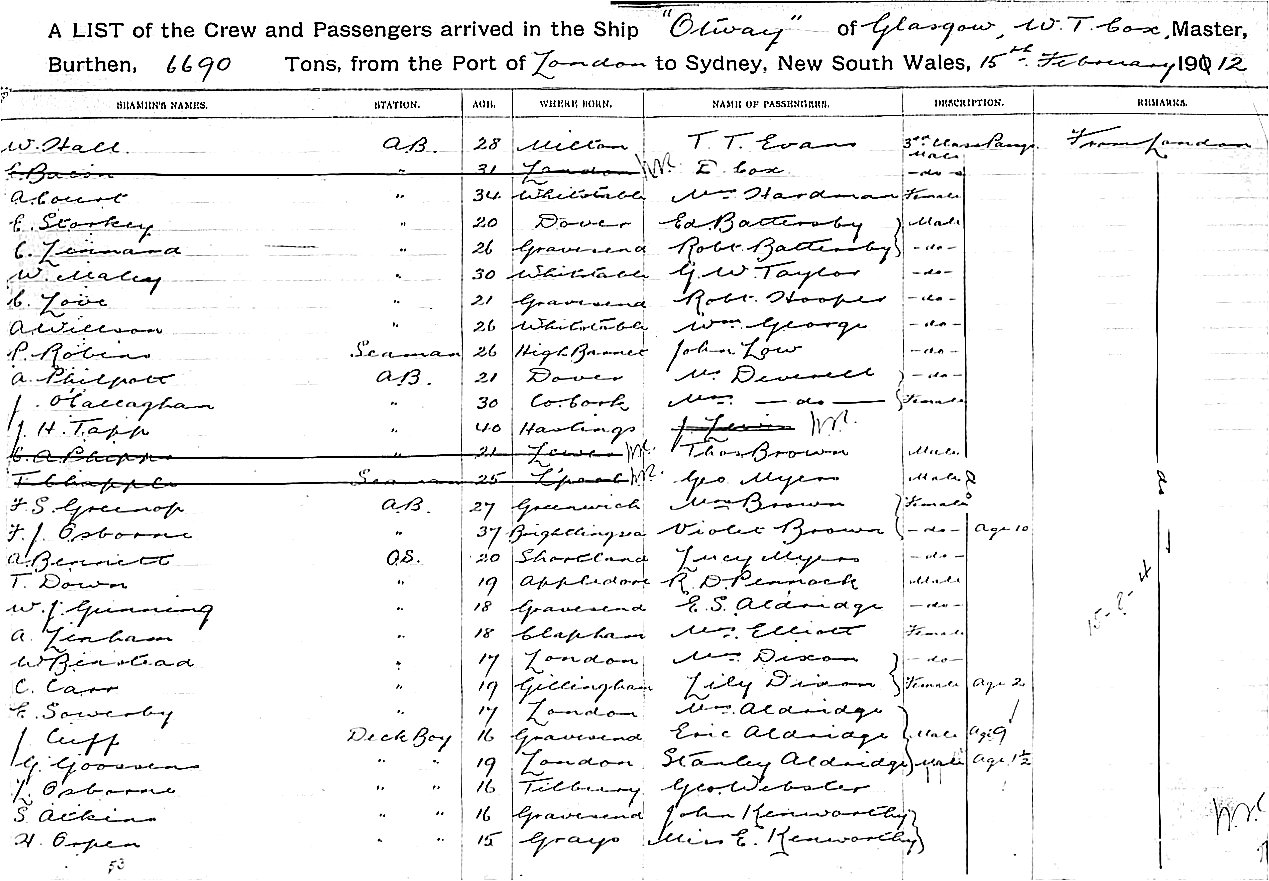 A LIST of the Crew and Passengers arrived in the Ship "Otway" of Glasgow, W. T. Cox, Master,
Burthen, 6690 Tons, from the Port of London to Sydney, New South Wales, 15th February 1912
SEAMEN'S NAMES. STATION. AGE. WHERE BORN. NAME OF PASSENGERS. DESCRIPTION. REMARKS.
W. Hall. A.B. 28 Milton T. T. Evans 3rd Class Pangr Male From London
E. Bacon " 31 London E Cox -do-
A Court " 34 Whitstable Mrs Hardman Female
E. Storkey " 20 Dover Ed Battersby Male
C. Lennard " 26 Gravesend Robt Battersby -do-
W. Maley " 30 Whitstable G. W. Taylor -do-
C. Love " 21 Gravesend Robt. Hooper -do-
A Willson " 26 Whitstable Wm George -do-
P. Robins Seaman 26 High Barnet John Low -do-
A. Philpott A.B. 21 Dover Mr Deverell -do-
J. O'Callagham " 30 Co. Cork Mrs -do- Female
J. H. Tapp " 40 Hastings J. Lewis
C. A. Phipps " 21 Lewes Thos Brown Male
T. Chapple Seaman 25 L'pool Geo Myers Male
F. S. Greenop A.B. 27 Greenwich Mrs Brown Female
F. J. Osborne " 37 Brightlingsea Violet Brown -do- Age 10
A Bennett O.S. 20 Shortland Lucy Myers -do-
T. Down " 19 Appledore R. D. Pennock Male
W. J. Gunning " 18 Gravesend E. S. Aldridge -do-
A. Lenham " 18 Clapham Mrs Elliott Female
W Benstead " 17 London Mrs Dixon -do-
C. Carr " 19 Gillingham Lily Dixon Female Age 2
E. Sowerby " 17 London Mrs Aldridge
J Cuff Deck Boy 16 Gravesend Eric Aldridge Male Age 9
G. Goossens " " 19 London Stanley Aldridge Male Age 1½
Osborne " " 16 Tilbury Geo. Webster
S. Atkins " " 16 Gravesend John Kenworthy
H. Orpen " " 15 Grays Miss E. Kenworthy
do
53